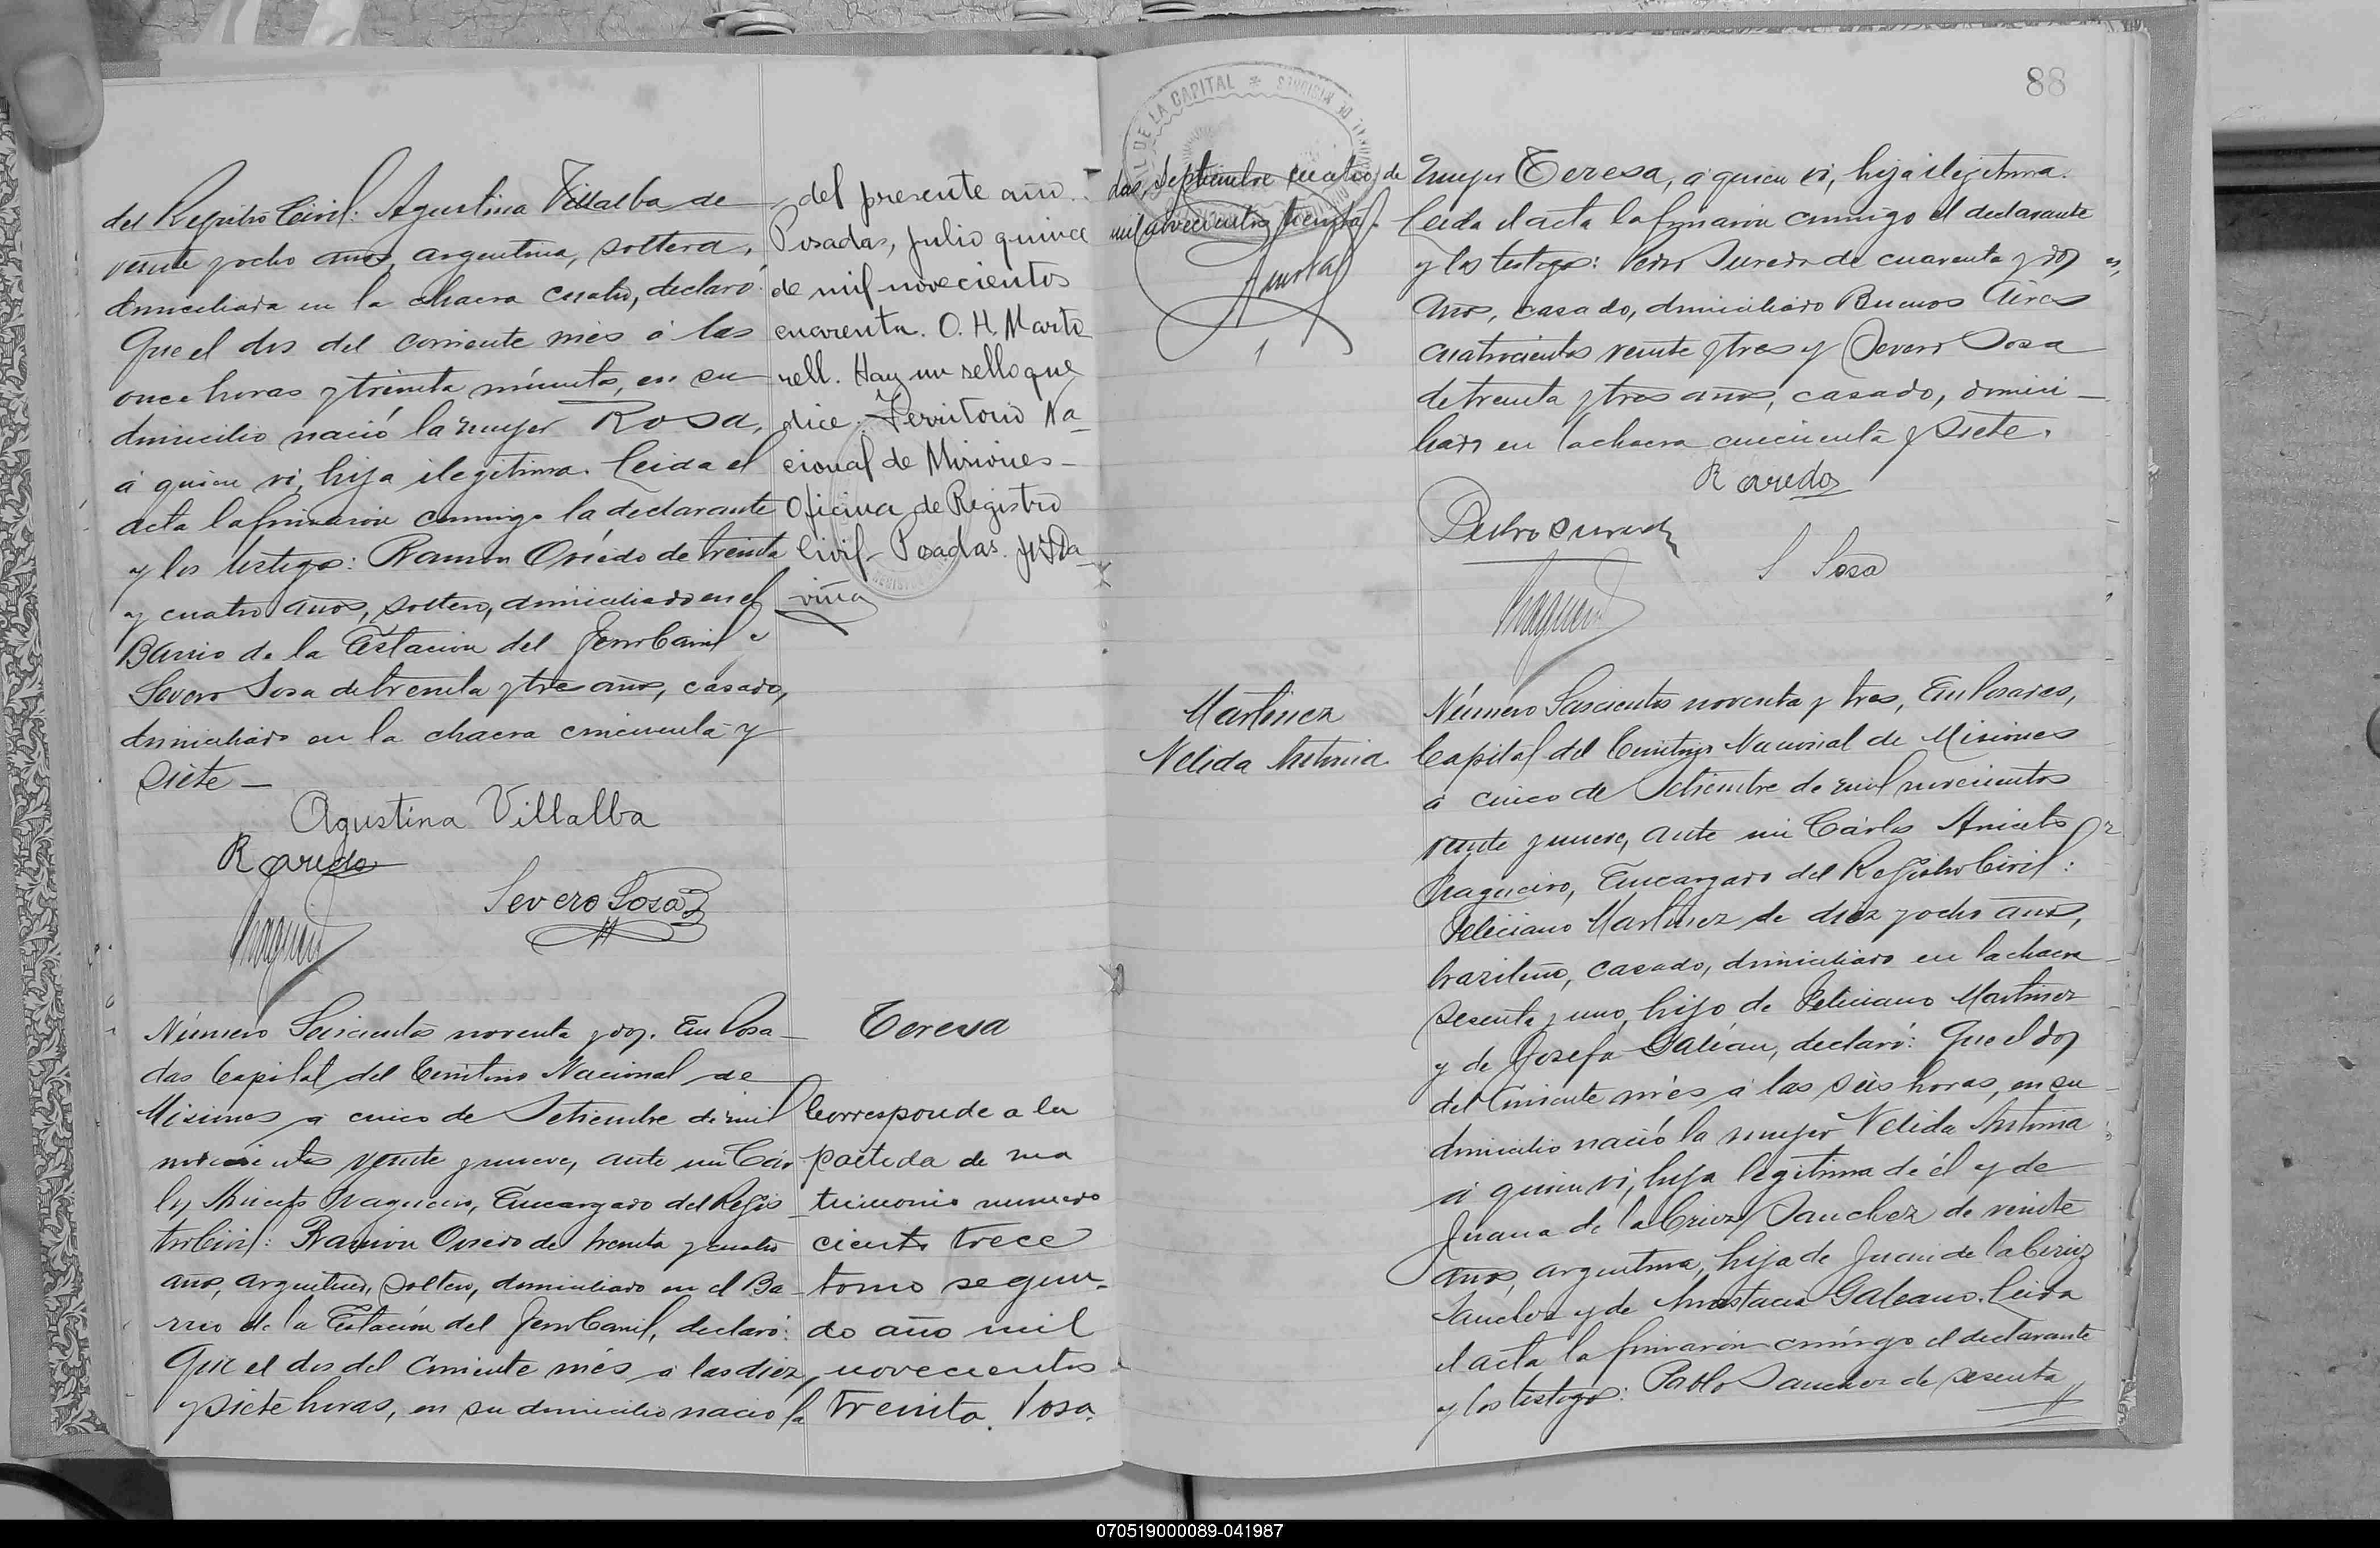 del Registro Civil: Agustina Villalba de
veinte y ocho años, argentina, soltera,
domiciliada en la chacra cuatro, declaró:
Que el dos del corriente mes á las
once horas y treinta minutos, en su
domicilio nació la mujer Rosa,
á quien vi, hija ilegitima. Leida el
acta la firmaron conmigo la declarante
y los testigos: Ramon Oviedo de treinta
y cuatro años, soltero, domiciliado en el
Barrio de la Estacion del Ferro Carril y
Severo Sosa de treinta y tres años, casado,
domiciliado en la chacra cincuenta y
siete —
Agustina Villalba
R Oviedo
Severo Sosa
del presente año.
Posadas, Julio quince
de mil novecientos
cuarenta. O. H. Marto
rell. Hay un sello que
dice: Territorio Na-
cional de Misiones -
Oficina de Registro
Civil - Posadas.
Número Seiscientos noventa y dos. En Posa-
das Capital del Territorio Nacional de
Misiones a cinco de Setiembre de mil
novecientos veinte y nueve, ante mi Cár-
los Aniceto Fragueiro, Encargado del Regis-
tro Civil: Ramón Oviedo de treinta y cuatro
años, argentino, soltero, domiciliado en el Ba-
rrio de la Estación del Ferro Carril, declaró:
Que el dos del corriente més a las diez
y siete horas, en su domicilio nació la
Teresa
Corresponde a la
partida de ma
trimonio numero
ciento trece
tomo segun-
do año mil
novecientos
treinta. Posa.
88
DE LA CAPITAL
das, Septiembre cuatro de
mil novecientos treinta.
mujer Teresa, a quien vi, hija ilegitima.
Leida el acta la firmaron conmigo el declarante
y los testigos: Pedro Sureda de cuarenta y dos
años, casado, domiciliado Buenos Aires
cuatrocientos veinte y tres y Severo Sosa
de treinta y tres años, casado, domici-
liado en la chacra cincuenta y siete.
R Oviedo
Pedro Sureda
S Sosa
Martinez
Nelida Antonia
Número Seiscientos noventa y tres, En Posadas,
Capital del Territorio Nacional de Misiones
a cinco de Setiembre de mil novecientos
veinte y nueve, ante mi Cárlos Aniceto
Fragueiro, Encargado del Registro Civil:
Feliciano Martinez de diez y ocho años,
brazileño, casado, domiciliado en la chacra
sesenta y uno, hijo de Feliciano Martinez
y de Josefa Galean, declaró: Que el dos
del corriente més a las seis horas, en su
domicilio nació la mujer Nelida Antonia
a quien vi, hija legitima de él y de
Juana de la Cruz Sanchez de veinte
años, argentina, hija de Juan de la Cruz
Sanchez y de Anastacia Galeano. Leida
el acta la firmaron conmigo el declarante
y los testigos: Pablo Sanchez de sesenta
070519000089-041987